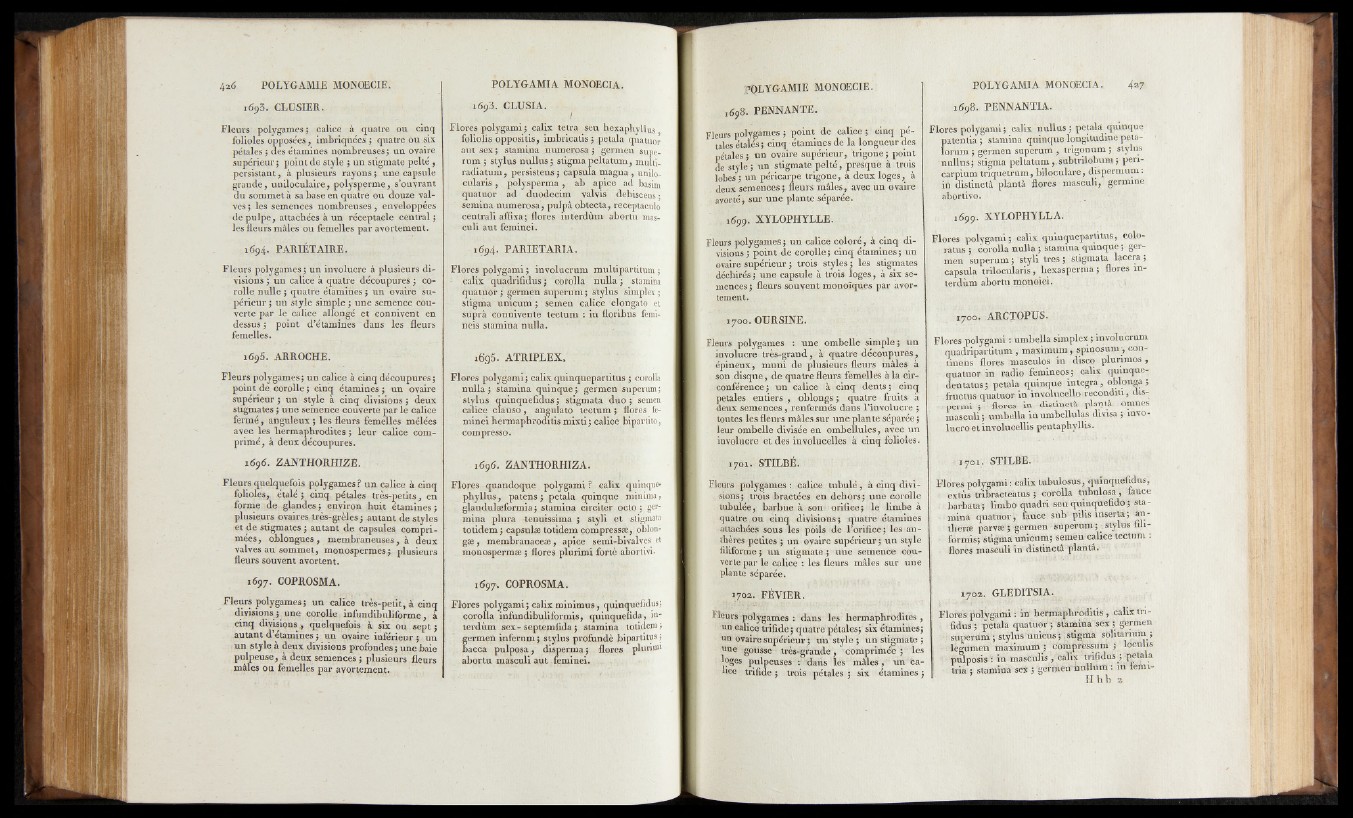 426 POLYGAMIE MONŒCIE.
1693. CLUSIER.
Fleurs polygames; calice à quatre ou cinq
folioles opposées, imbriquées; quatre ou six
pétales; des étamines nombreuses; un ovaire
supérieur; point de style; un stigmate pelté,
persistant, à plusieurs rayons; une capsule
grande, uniloculaire, polysperme, s'ouvrant
du sommet à sa base en quatre ou douze val-
ves; les semences nombreuses, enveloppées
de pulpe, attachées à un réceptacle central;
les fleurs mâles ou femelles par avortement.
1694. PARIÉTAIRE.
Fleurs polygames; un involucre à plusieurs di-
visions; un calice à quatre découpures; co-
rolle nulle; quatre étamines; un ovaire su-
périeur; un style simple; une semence cou-
verte par le calice allongé et connivent en
dessus; point d'étamines dans les fleurs
femelles.
1695. ARROCHE.
Fleurs polygames; un calice à cinq découpures;
point de corolle; cinq étamines; un ovaire
supérieur; un style à cinq divisions; deux
stigmates; une semence couverte par le calice
fermé, anguleux; les fleurs femelles mêlées
avec les hermaphrodites; leur calice com-
primé, à deux découpures.
1696. ZANTHORHIZE.
Fleurs quelquefois polygames? un calice à cinq
folioles, étalé; cinq pétales très-petits, en
forme de glandes; environ huit étamines;
plusieurs ovaires très-grèles; autant de styles
et de stigmates; autant de capsules compri-
mées, oblongues, membraneuses, à deux
valves au sommet, monospermes; plusieurs
fleurs souvent avortent.
1697. COPROSMA.
Fleurs polygames; un calice très-petit, à cinq
divisions; une corolle infundibuliforme, à
cinq divisions, quelquefois à six ou sept;
autant d'étamines; un ovaire inférieur; un
un style à deux divisions profondes; une baie
pulpeuse, à deux semences; plusieurs fleurs
mâles ou femelles par avortement.
POLYGAMIA MONŒCIA.
1693. CLUSIA.
Flores polygami; calix tetra seu hexaphyllus,
foliolis oppositis, imbricatis; petala quatuor
aut sex; stamina numerosa; germen supe-
rum; stylus nullus; stigma peltatum, multi-
radiatum, persistens; capsula magna, unilo-
cularis, polysperma, ab apice ad basim
quatuor ad duodecim valvis debiscens;
semina numerosa, pulpâ obtecta, receptaculo
centrali affixa; flores interdùm abortu mas-
culi aut feminei.
1694. PARIETARIA.
Flores polygami; involucrum multipartitum;
calix quadrifidus; corolla nulla; stamina
quatuor; germen superum; stylus simplex;
stigma unicum; semen calice elongato et
suprà connivente tectum : in floribus femi-
neis stamina nulla.
1695. ATRIPLEX.
Flores polygami; calix quinquepartitus; corolla
nulla; stamina quinque; germen superum;
stylus quinquefidus; stigmata duo; semen
calice clauso, angulato tectum; flores fe-
minei hermaphroditis mixti; calice bipartito,
compresso.
1696. ZANTHORHIZA.
Flores quandoque polygami? calix quinque-
phyllus, patens; petala quinque minima,
glandulæformia; stamina circiter octo; ger-
mina plura tenuissima; styli et stigmata
totidem; capsulæ totidem compressæ, oblon-
gæ, membranaceæ, apice semi-bivalves et
monospermæ; flores plurimi fortè abortivi.
1697. COPROSMA.
Flores polygami; calix minimus, quinquefidus;
corolla infundibuliformis, quinquefida, in-
terdùm sex-septemfida; stamina totidem;
germen inferum; stylus profundè bipartitus;
bacca pulposa, disperma; flores plurimi
abortu masculi aut feminei.
POLYGAMIE MONŒCIE.
1698. PENNANTE.
Fleurs polygames; point de calice; cinq pé-
tales étalés; cinq étamines de la longueur des
pétales; un ovaire supérieur, trigone; point
de style; un stigmate pelté, presque à trois
lobes; un péricarpe trigone, à deux loges, à
deux semences; fleurs mâles, avec un ovaire
avorté, sur une plante séparée.
1699. XYLOPHYLLE.
Fleurs polygames; un calice coloré, à cinq di-
visions; point de corolle; cinq étamines; un
ovaire supérieur; trois styles; les stigmates
déchirés; une capsule à trois loges, à six se-
mences; fleurs souvent monoïques par avor-
tement.
1700. OURSINE.
Fleurs polygames : une ombelle simple; un
involucre très-grand, à quatre découpures,
épineux, muni de plusieurs fleurs mâles à
son disque, de quatre fleurs femelles à la cir-
conférence; un calice à cinq dents; cinq
petales entiers, oblongs; quatre fruits à
deux semences, renfermés dans l'involucre;
toutes les fleurs mâles sur une plante séparée;
leur ombelle divisée en ombellules, avec un
involucre et des involucelles à cinq folioles.
1701. STILBÉ.
Fleurs polygames : calice tubulé, à cinq divi-
sions; trois bractées en dehors; une corolle
tubulée, barbue à son orifice; le limbe à
quatre ou cinq divisions; quatre étamines
attachées sous les poils de l'orifice; les an-
thères petites; un ovaire supérieur; un style
filiforme; un stigmate; une semence cou-
verte par le calice : les fleurs mâles sur une
plante séparée.
1702. FÉVIER.
Fleurs polygames : dans les hermaphrodites,
un calice trifide; quatre pétales; six étamines;
un ovaire supérieur; un style; un stigmate;
une gousse très-grande, comprimée; les
loges pulpeuses : dans les mâles, un ca-
lice trifide; trois pétales; six étamines;
POLYGAMIA MONŒCIA. 427
1698. PENNANTIA.
Flores polygami; calix nullus; petala quinque
patentia; stamina quinque longitudine peta-
lorum; germen superum, trigonum; stylus
nullus; stigma peltatum, subtrilobum; peri-
carpium triquetrum, biloculare, dispermum :
in distinctâ plantâ flores masculi, germine
abortivo.
1699. XYLOPHYLLA.
Flores polygami; calix quinquepartitus, colo-
ratus; corolla nulla; stamina quinque; ger-
men superum; styli tres; stigmata lacera;
capsula trilocularis, hexasperma; flores in-
terdum abortu monoici.
1700. ARCTOPUS.
Flores polygami : umbella simplex; involucrum
quadripartitum, maximum, spinosum, con-
tinens flores masculos in disco plurimos,
quatuor in radio femineos; calix quinque-
dentatus; petala quinque integra, oblonga;
fructus quatuor in involucello reconditi, dis-
permi; flores in distinctâ plantâ omnes
masculi; umbella in umbellulas divisa; invo-
lucro et involucellis pentaphyllis.
1701. STILBE.
Flores polygami : calix tubulosus, quinquefidus,
extùs tribracteatus; corolla tubulosa, fauce
barbata; limbo quadri seu quinquefido; sta-
mina quatuor, fauce sub pilis inserta; an-
theræ parvæ; germen superum; stylus fili-
formis; stigma unicum; semen calice tectum :
flores masculi in distinctâ plantâ.
1702. GLEDITSIA.
Flores polygami : in hermaphroditis, calix tri-
fidus; petala quatuor; stamina sex; germen
superum; stylus unicus; stigma solitarium;
legumen maximum; compressum; loculis
pulposis : in masculis, calix trifidus; petala
tria; stamina sex; germen nullum : in femi-
Hhh 2